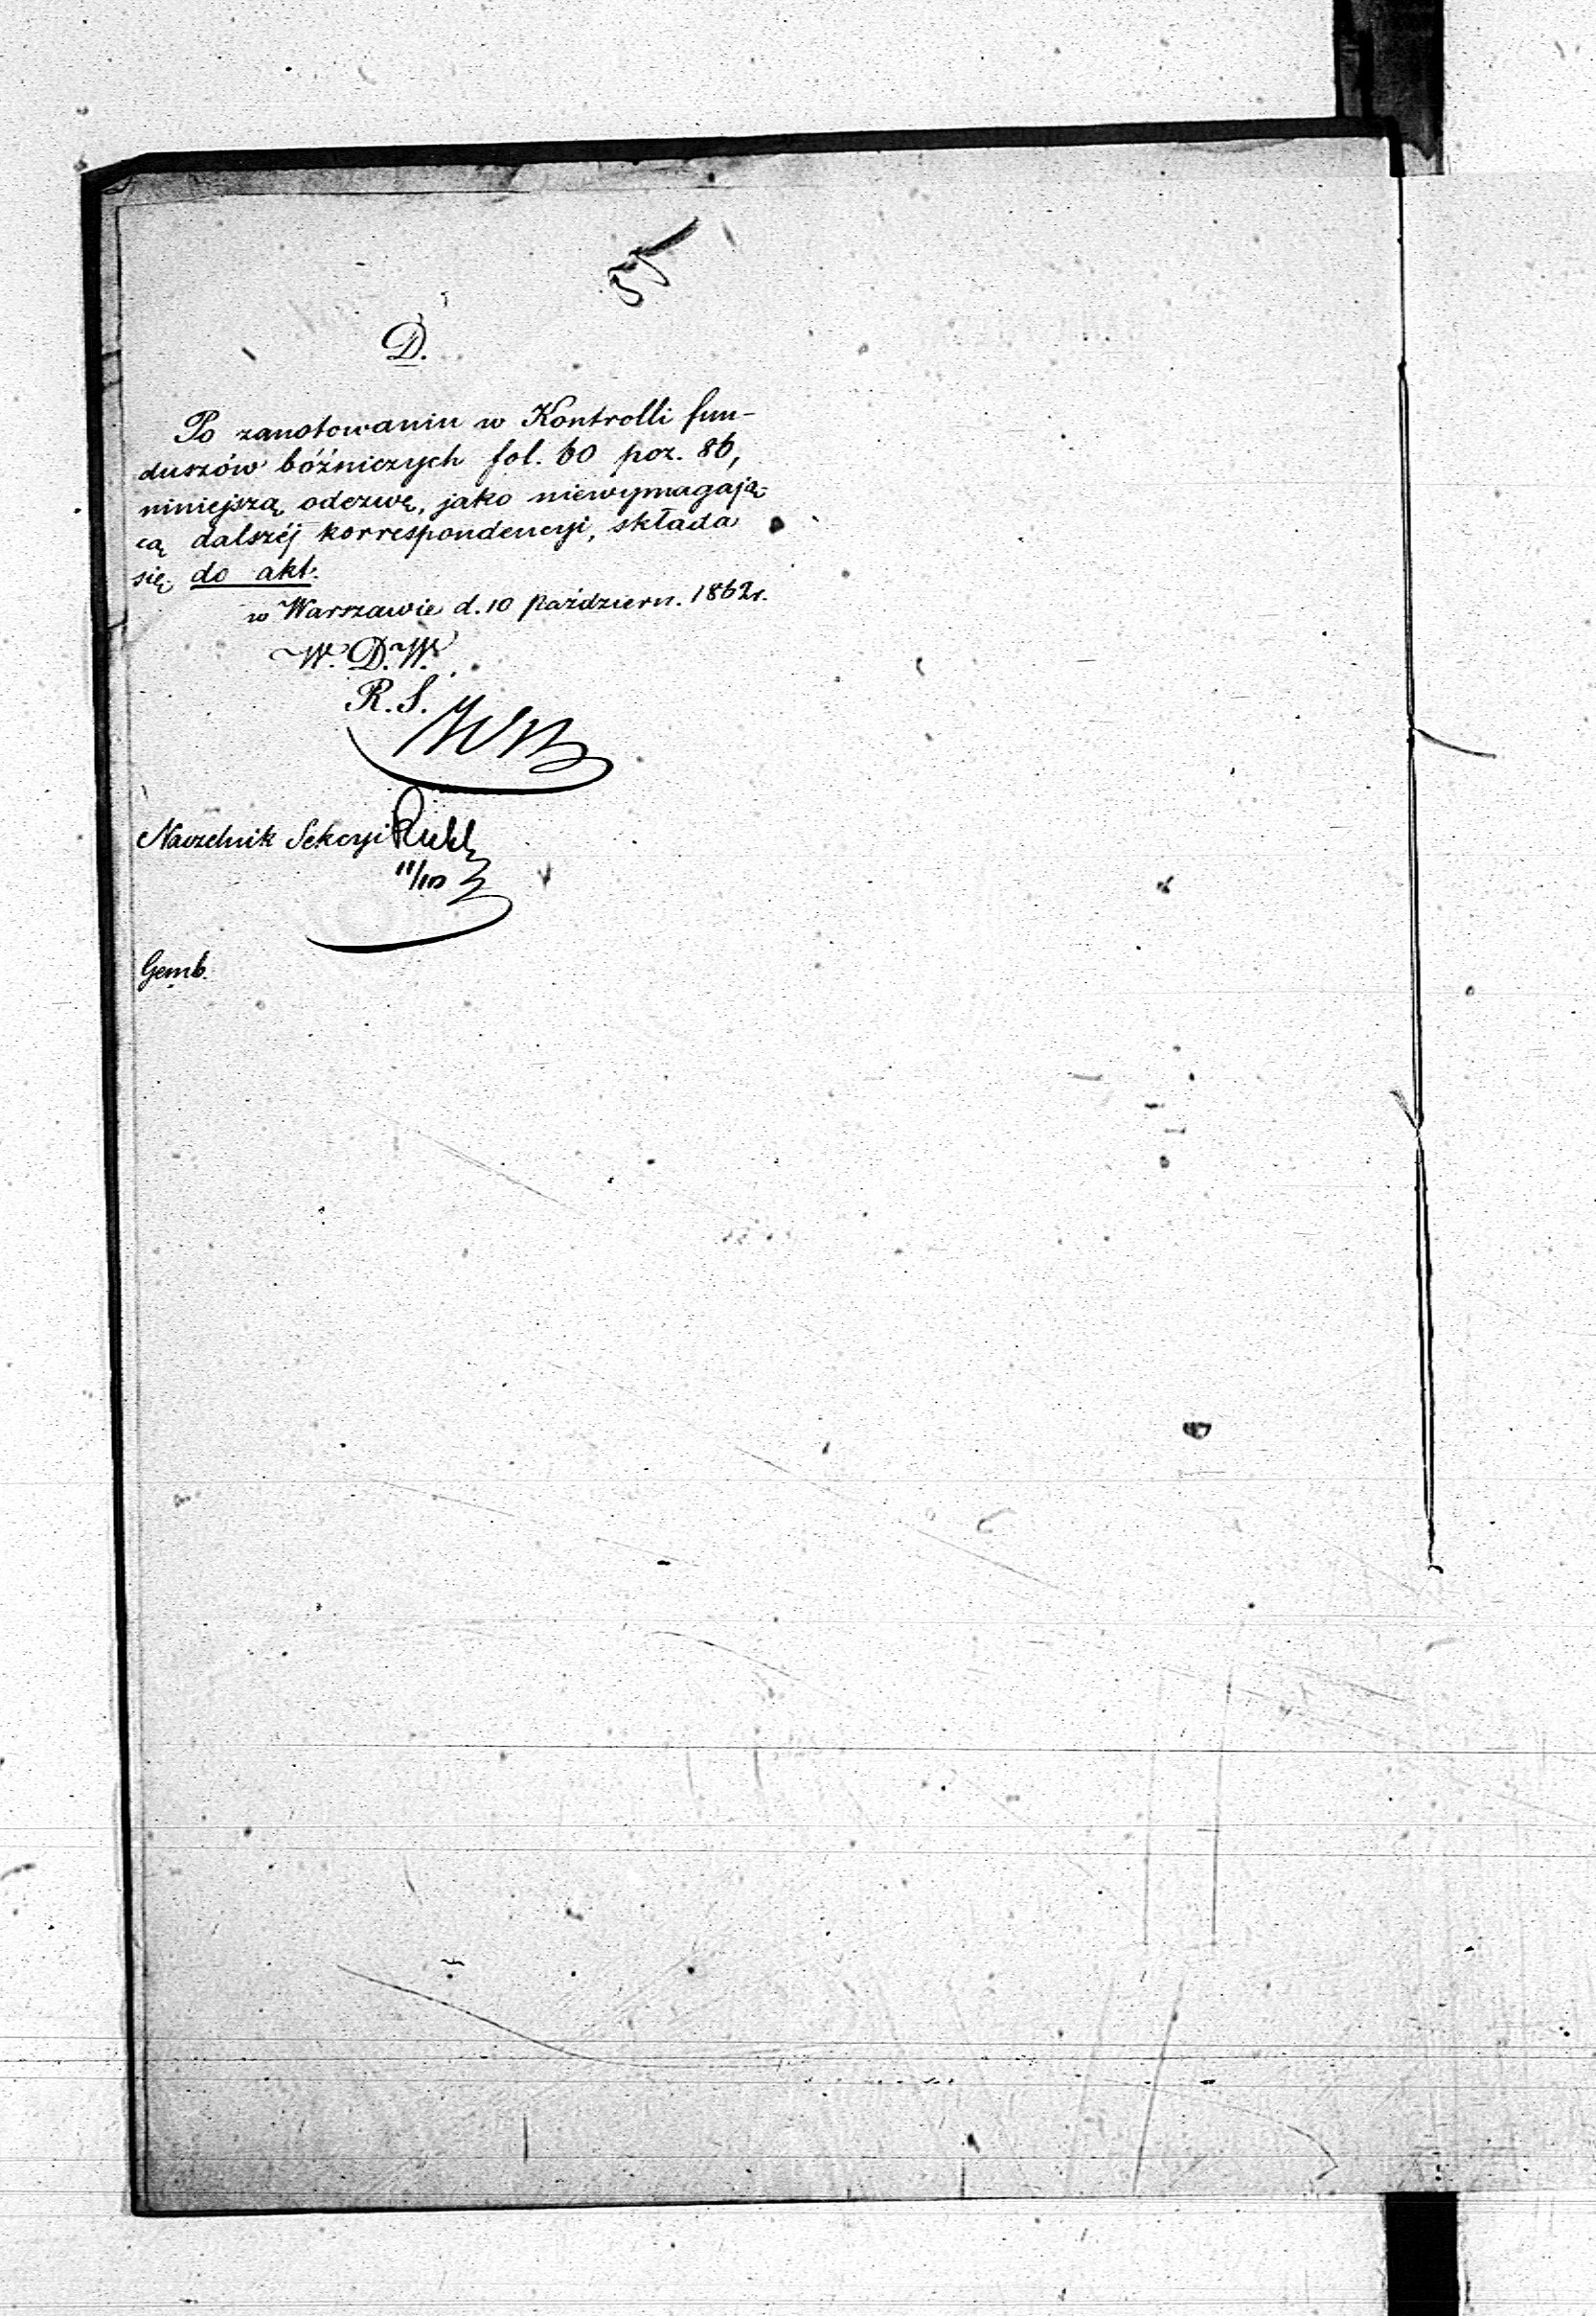 D.
Po zanotowaniu w Kontrolli fun-
duszów bóźniczych fol. 60 poz. 86,
niniejszą odezwę, jako niewymagają-
cą dalszéj korrespondencyi, składa
się do akt.
w Warszawie d. 10 Październ. 1862 r.
W. D. W.
R. S.
Naczelnik Sekcyi
11/10
Gemb.